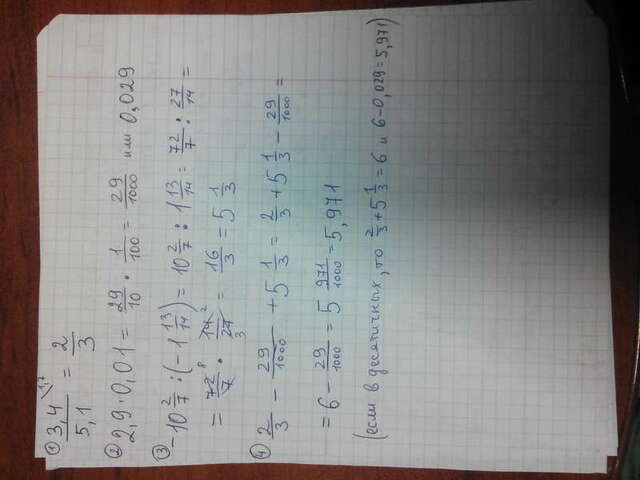 ① 3,4/5,1 1,7 = 2/3
② 2,9·0,01 = 29/10 · 1/100 = 29/1000 или 0,029
③ -10 2/7 : (-1 13/14) = 10 2/7 : 1 13/14 = 72/7 : 27/14 =
= 72/7 8 · 14/27 2 3 = 16/3 = 5 1/3
④ 2/3 - 29/1000 + 5 1/3 = 2/3 + 5 1/3 - 29/1000 =
= 6 - 29/1000 = 5 971/1000 = 5,971
(если в десятичных, то 2/3 + 5 1/3 = 6 и 6-0,029 = 5,971)